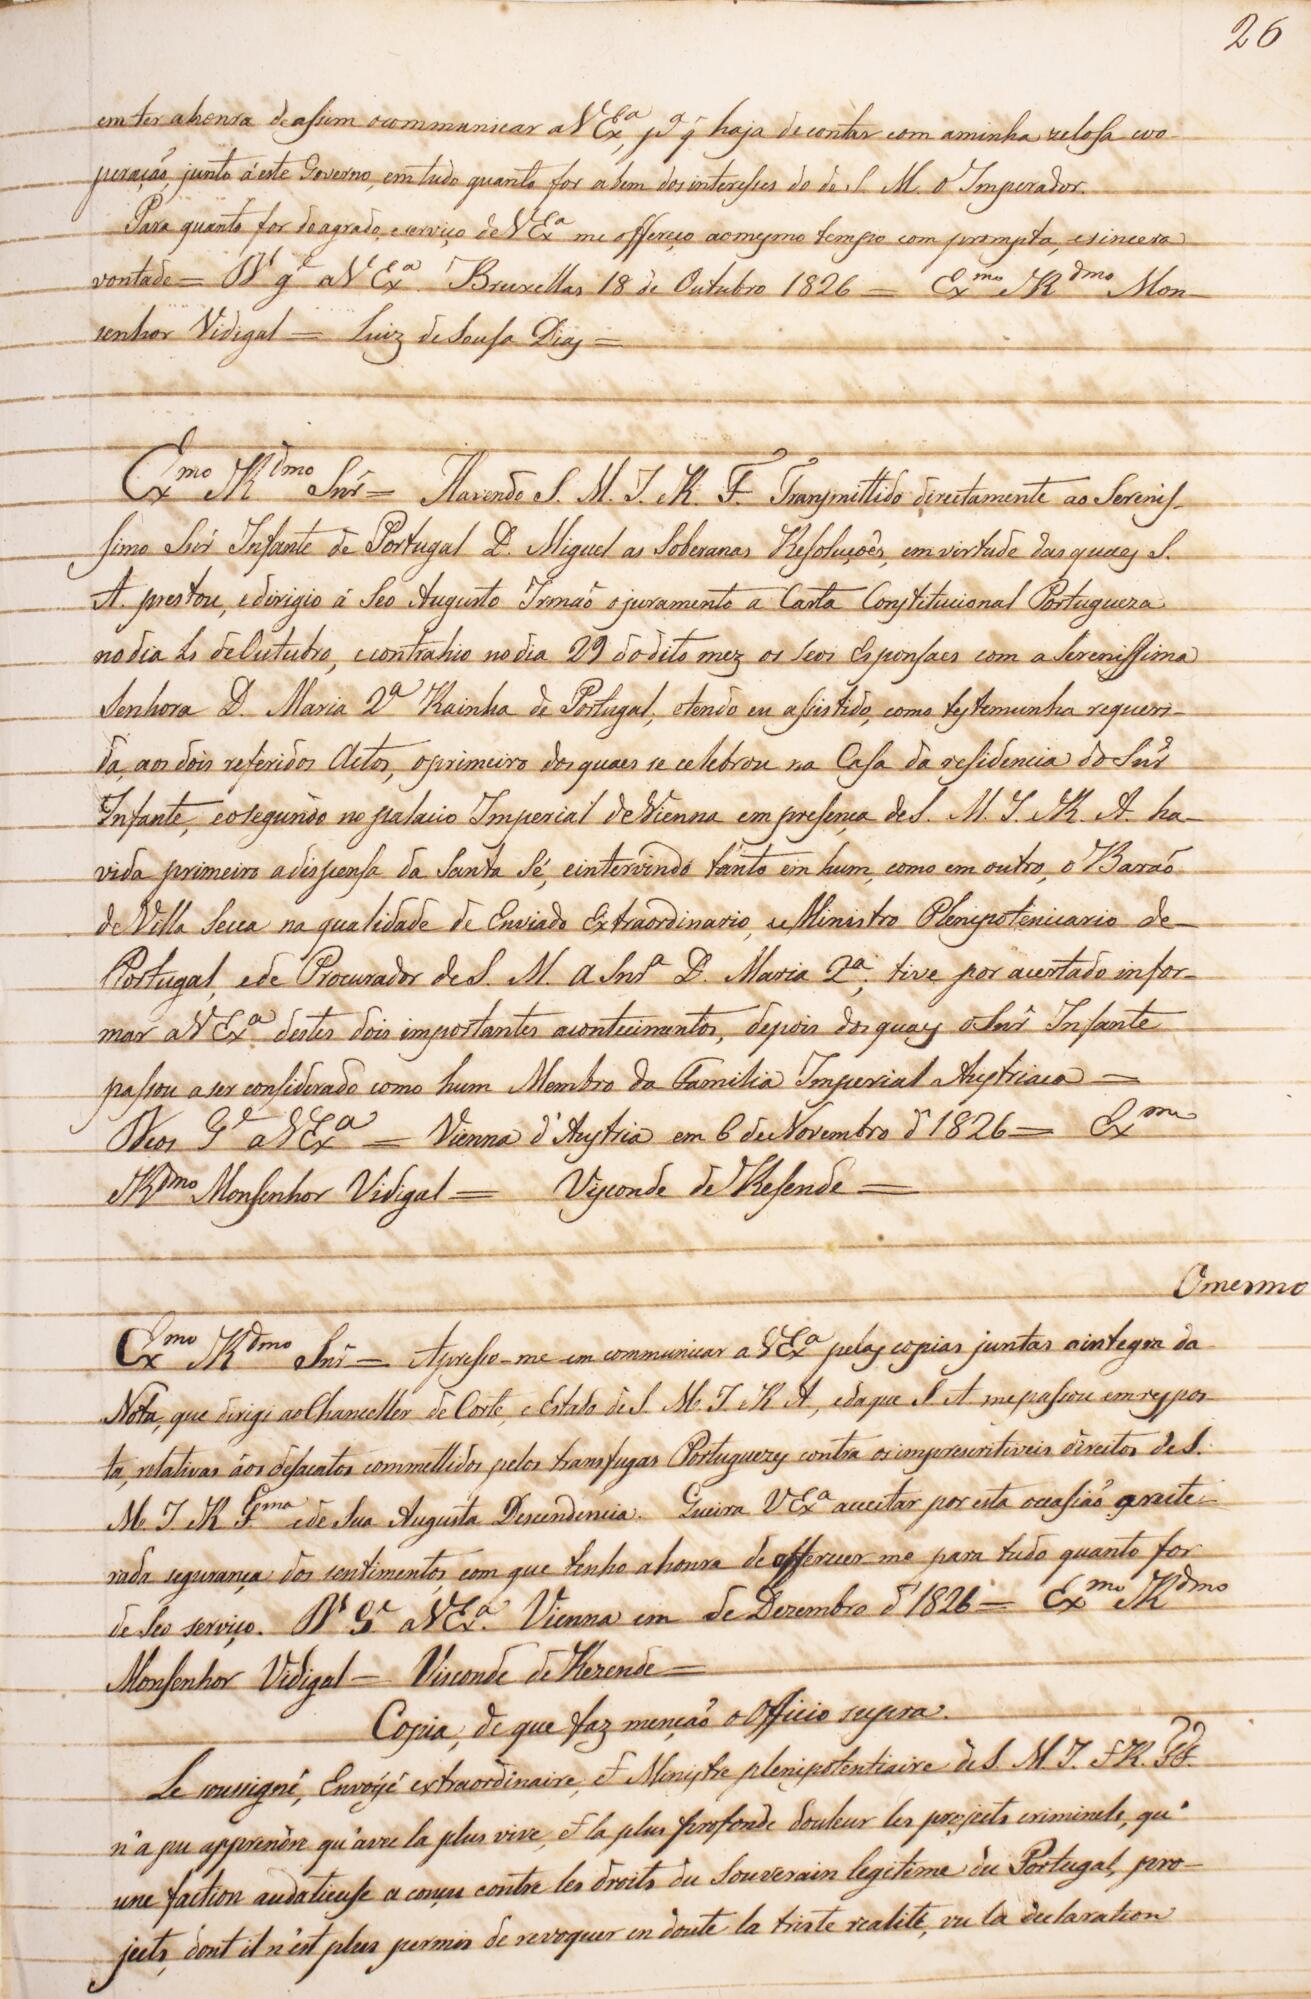 26
em ter a honra de assim o communicar a V Ex.ª, p.ª q̃ haja de contar com a minha zelosa coo-
peração, junto á este Governo, em tudo quanto for a bem dos interesses do de S. M. o Imperador.
Para quanto for de agrado, e serviço de V Ex.ª me offereço ao mesmo tempo com prompta, e sincera
vontade = D.s g.e a V Ex.ª. Bruxellas 18 de Outubro 1826 = Ex.mo e R.dmo Mon-
senhor Vidigal = Luiz de Sousa Dias =
Ex.mo R.dmo Snr̃ = Havendo S. M. I. e R. F. Transmittido directamente ao Serenis-
simo Snr̃ Infante de Portugal D. Miguel as Soberanas Resoluções, em virtude das quaes S.
A. prestou, e dirigio á Seo Augusto Irmaõ o juramento a Carta Constitucional Portugueza
no dia 4 de Outubro, e contrahio no dia 29 do dito mez os seos Esponsaes com a Serenissima
Senhora D. Maria 2ª Rainha de Portugal, e tendo eu assistido, como testemunha requeri-
da, aos dois referidos Actos, o primeiro dos quaes se celebrou na Casa da residencia do Snr̃
Infante, e o segundo no palacio Imperial de Vienna em presença de S. M. I. R. A. ha-
vida primeiro a dispensa da Santa Sé, e intervindo tanto em hum, como em outro, o Barão
de Villa Secca na qualidade de Enviado Extraordinario, e Ministro Plenipotenicario de
Portugal, e de Procurador de S. M. a Snr.ª D. Maria 2ª; tive por acertado infor-
mar a V Ex.ª destes dois importantes acontecimentos, depois dos quaes o Snr̃ Infante
passou a ser considerado como hum Membro da Familia Imperial Austriaca =
Deos G.e a V Ex.ª = Vienna d'Austria em 6 de Novembro d'1826 = Ex.mo
R.dmo Monsenhor Vidigal = Visconde de Resende =
O mesmo
Ex.mo R.dmo Snr̃ = Apresso-me em communicar a V Ex.ª pelas copias juntas a integra da
Nota, que dirigi ao Chanceller de Corte, e Estado de S. M. I. R A, e da que S. A. me passou em respos-
ta, relativas áos desacatos commettidos pelos transfugas Portuguezes contra os imprescritiveis direitos de S.
M. I. R F.ma e de Sua Augusta Descendencia. Queira V Ex.ª acceitar por esta occasião a reite-
rada segurança dos sentimentos, com que tenho a honra de offerecer-me para tudo quanto for
de Seo serviço. D.s G.e a V Ex.ª. Vienna em de Dezembro d'1826 = Ex.mo R.dmo
Monsenhor Vidigal = Visconde de Rezende =
Copia, de que faz menção o Officio supra.
Le soussigné, Envoyé extraordinaire, et Ministre plenipotentiaire de S. M. I. et R. F.
n'a pu apprendre qu'avec la plus vive, et la plus profonde douleur les projects criminels, qu'
une faction audatieuse a conçu contre les droits du Souverain legitime du Portugal, pro-
jects, dont il n'est plus permis de revoquer en doute la triste realité, vu la declaration